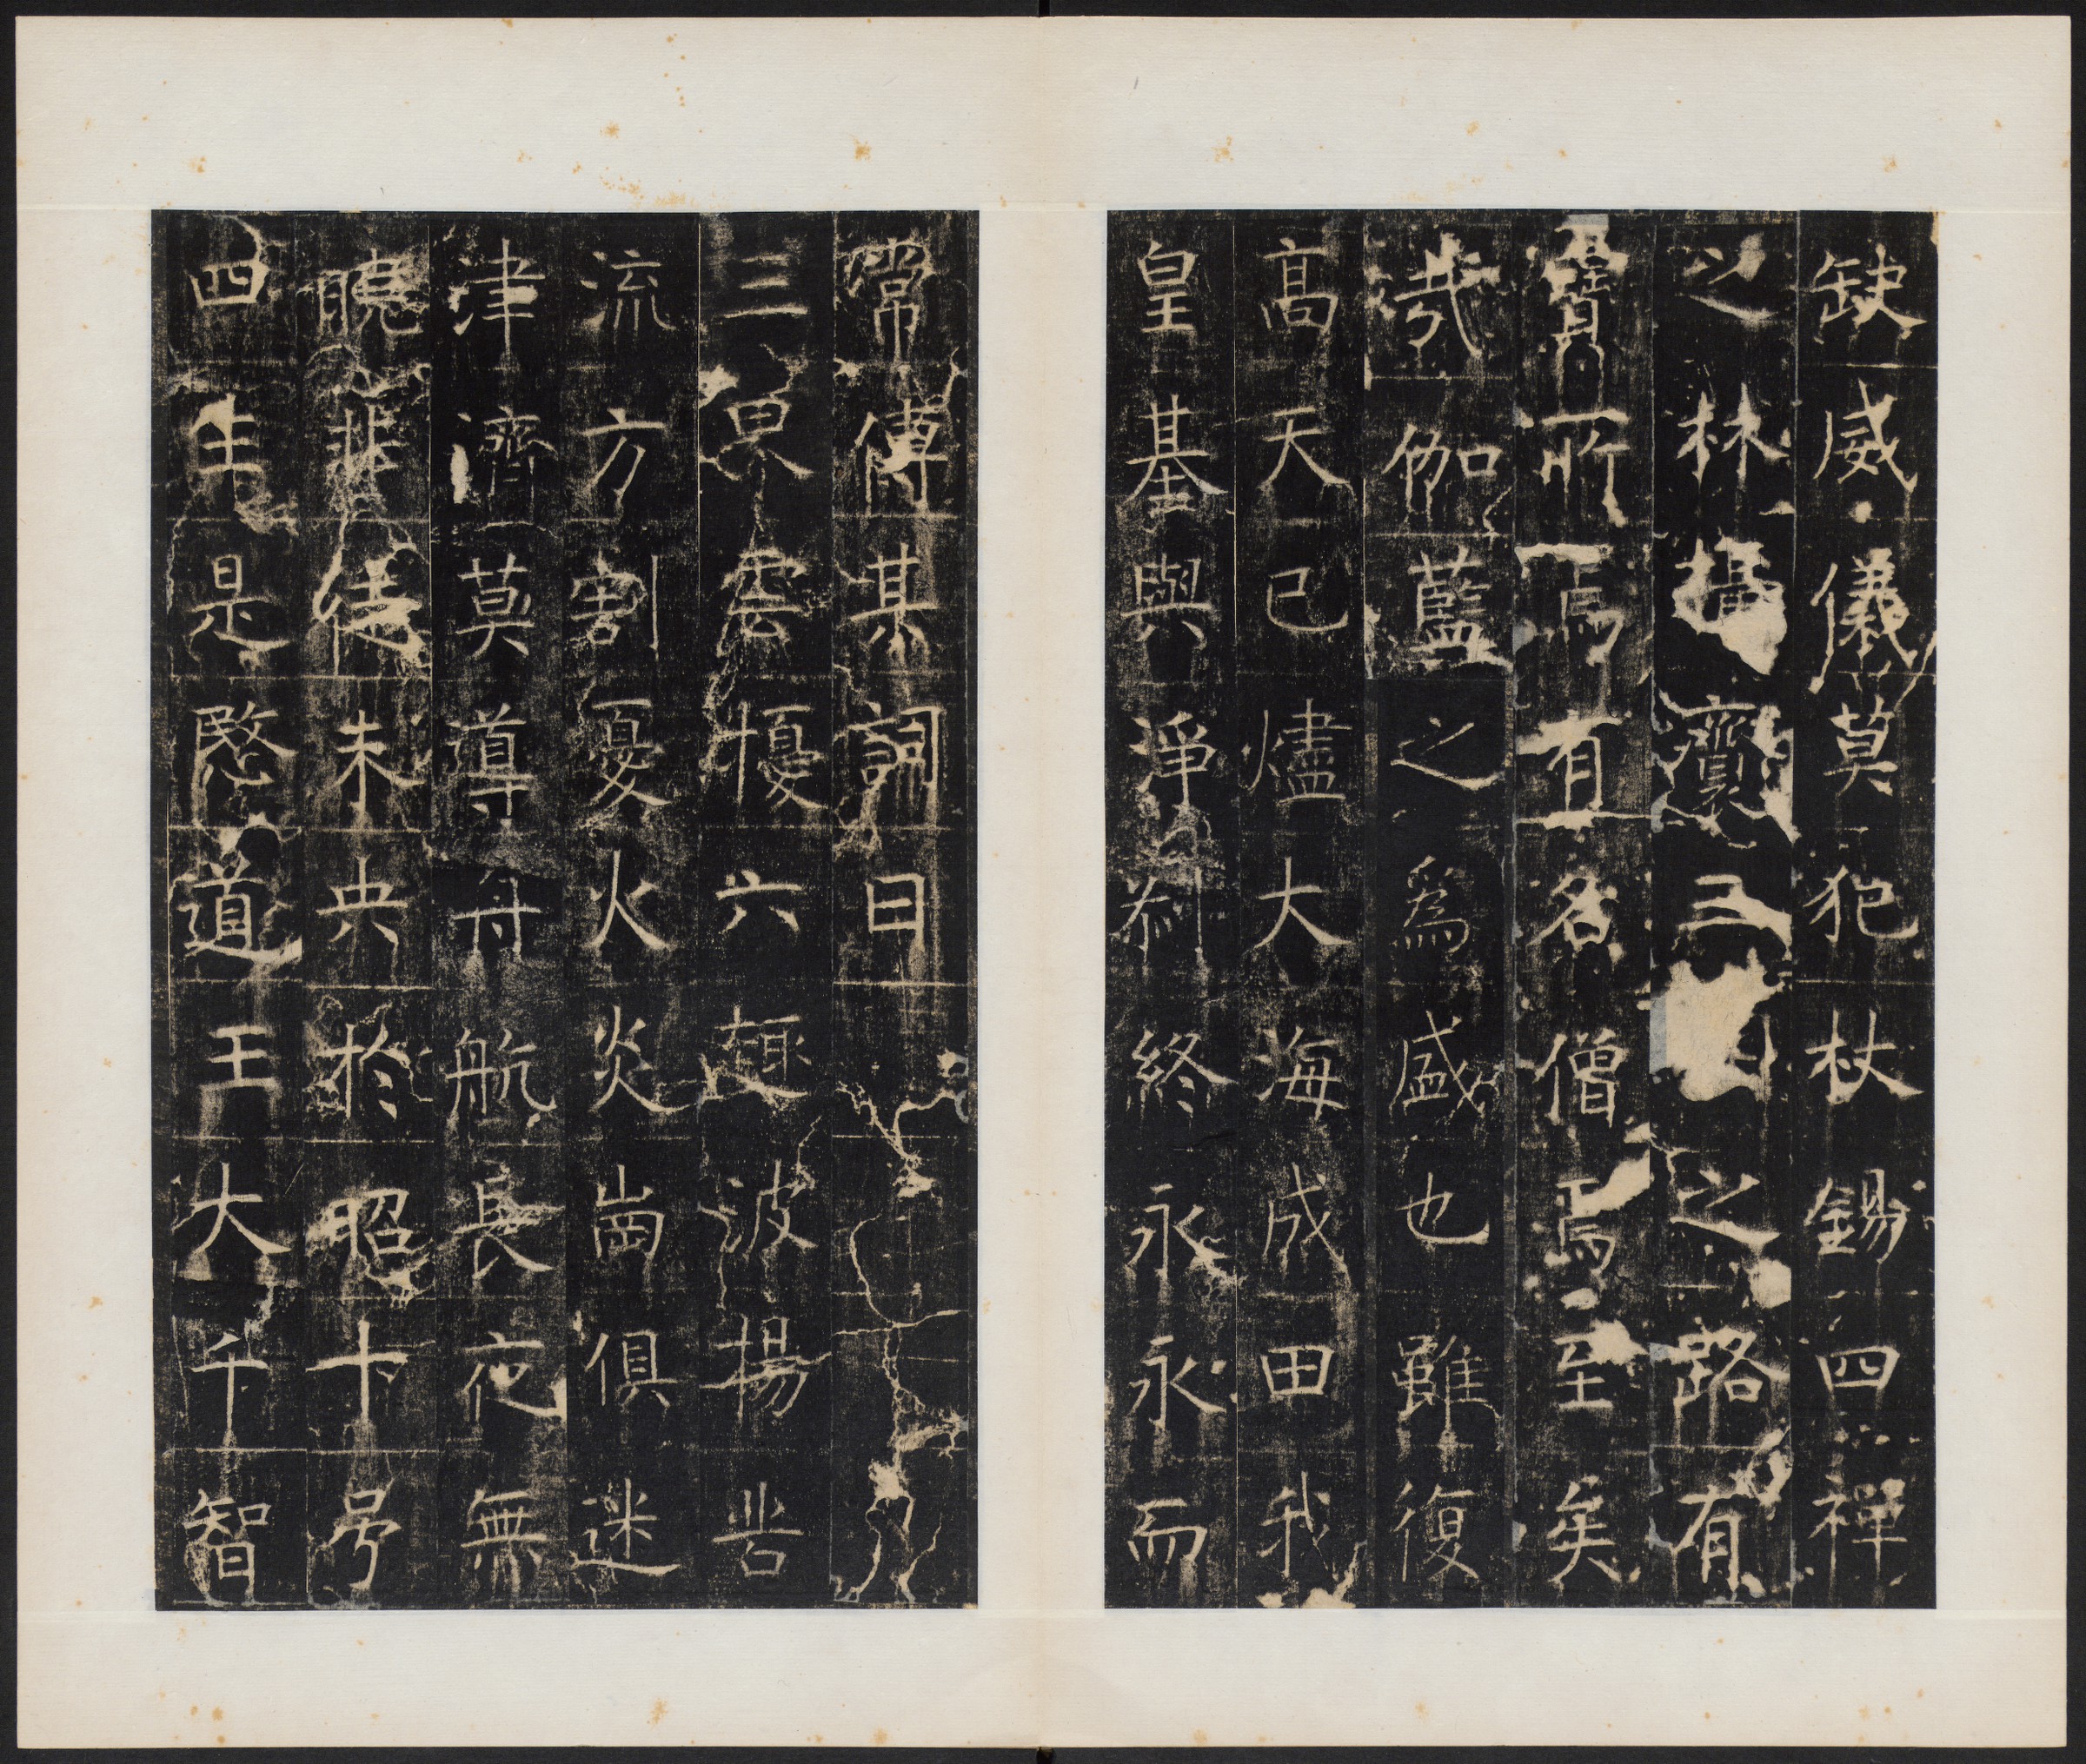 缺威儀莫犯杖錫四禪
之林齎三之路有
寶所焉名僧焉至矣
哉伽藍之為盛也雖復
高天已燼大海成田我
皇基與淨刹終永永而
常傳其詞曰
三界雲擾六趣波揚苦
流方割憂火炎崗俱迷
津濟莫導舟航長夜無
曉悲徒未央於昭十号
四生是愍道王大千智